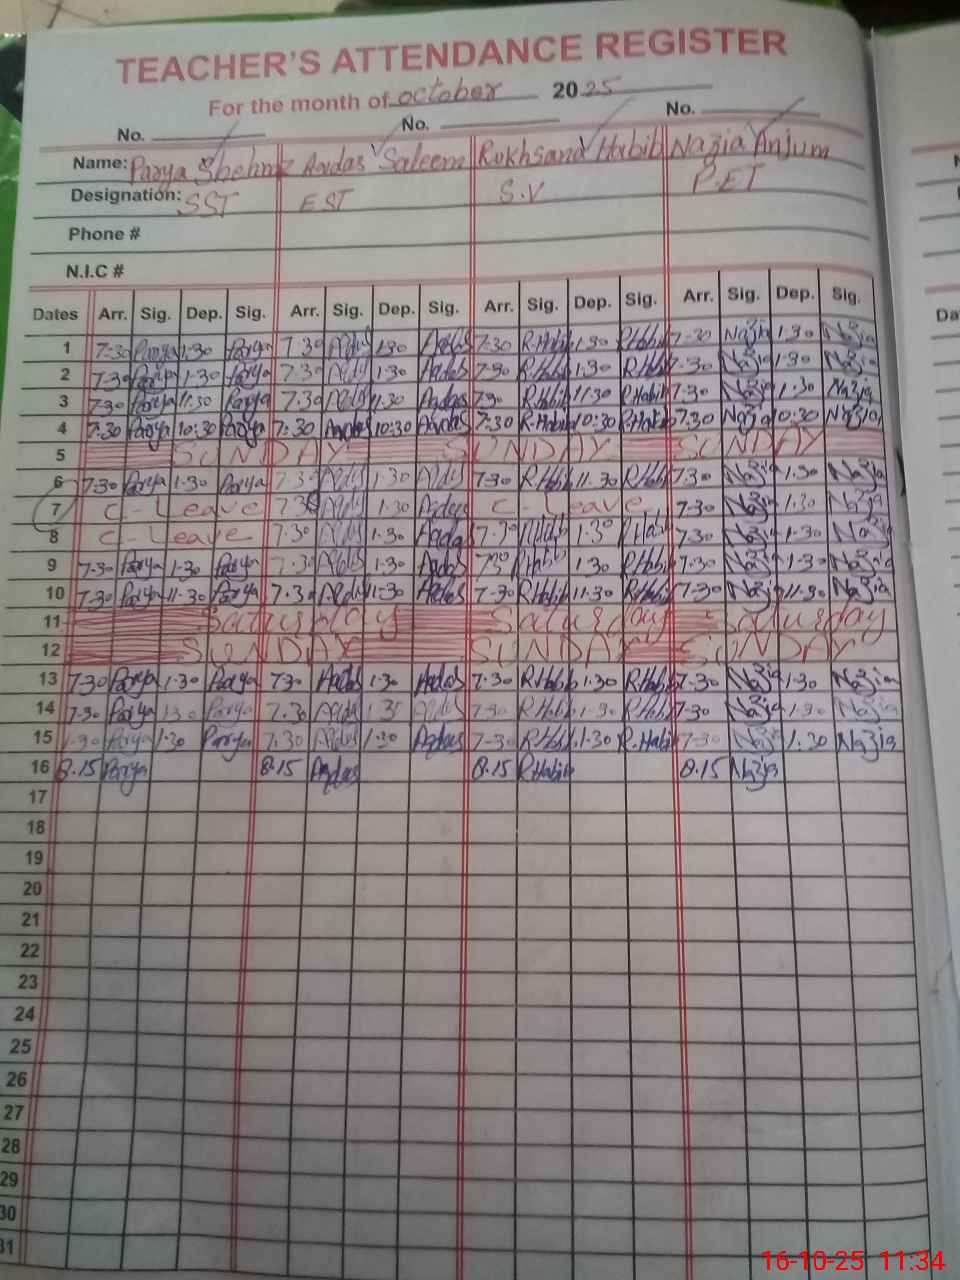 TEACHER'S ATTENDANCE REGISTER
For the month of october 2025
No. No. No.
Name: Parya Saleem Rukhsana Habib Nazia Anjum
Designation: SST EST S.V P.ET
Phone #
N.I.C #
Dates Arr. Sig. Dep. Sig. Arr. Sig. Dep. Sig. Arr. Sig. Dep. Sig. Arr. Sig. Dep. Sig.
1 7-30 Parya 1:30 Parya 7.30 1:30 7-30 R.Habib 1.30 R.Habib 7-30 Nazia 1.30 Nazia
2 7-30 Parya 1-30 Parya 7.30 1-30 7-30 R.Habib 1.30 R.Habib 7-30 Nazia 1-30 Nazia
3 7-30 Parya 11.30 Parya 7.30 11.30 7-30 R.Habib 11.30 R.Habib 7.30 Nazia 11.30 Nazia
4 7:30 Parya 10:30 Parya 7:30 10:30 7-30 R.Habib 10:30 R.Habib 7.30 Nazia 10:30 Nazia
5 SUNDAY SUNDAY SUNDAY
6 7-30 Parya 1-30 Parya 7.30 1.30 7-30 R.Habib R.Habib 7.30 Nazia 1.30 Nazia
7 C-Leave 7.30 1.30 C-Leave 7-30 Nazia 1.30 Nazia
8 C-Leave 7.30 1-30 7-30 1.30 7-30 Nazia 1-30 Nazia
9 7-30 Parya 1-30 Parya 7.30 1-30 7-30 1.30 R.Habib 7-30 Nazia 1-30 Nazia
10 7-30 Parya 11-30 Parya 7.30 11:30 7-30 R.Habib 11.30 R.Habib 7-30 Nazia 11-30 Nazia
11 Saturday Saturday Saturday
12 SUNDAY SUNDAY SUNDAY
13 7-30 Parya 1-30 Parya 7-30 1-30 7-30 R.Habib 1.30 R.Habib 7-30 Nazia 1-30 Nazia
14 7-30 Parya 1-30 Parya 7.30 1.30 7-30 R.Habib 1-30 R.Habib 7-30 Nazia 1-30 Nazia
15 Parya 1-30 Parya 7.30 1.30 7-30 R.Habib 1.30 R.Habib 7-30 Nazia 1.30 Nazia
16 8.15 Parya 8.15 8.15 R.Habib 8.15 Nazia
17
18
19
20
21
22
23
24
25
26
27
28
29
30
31
16-10-25 11:34